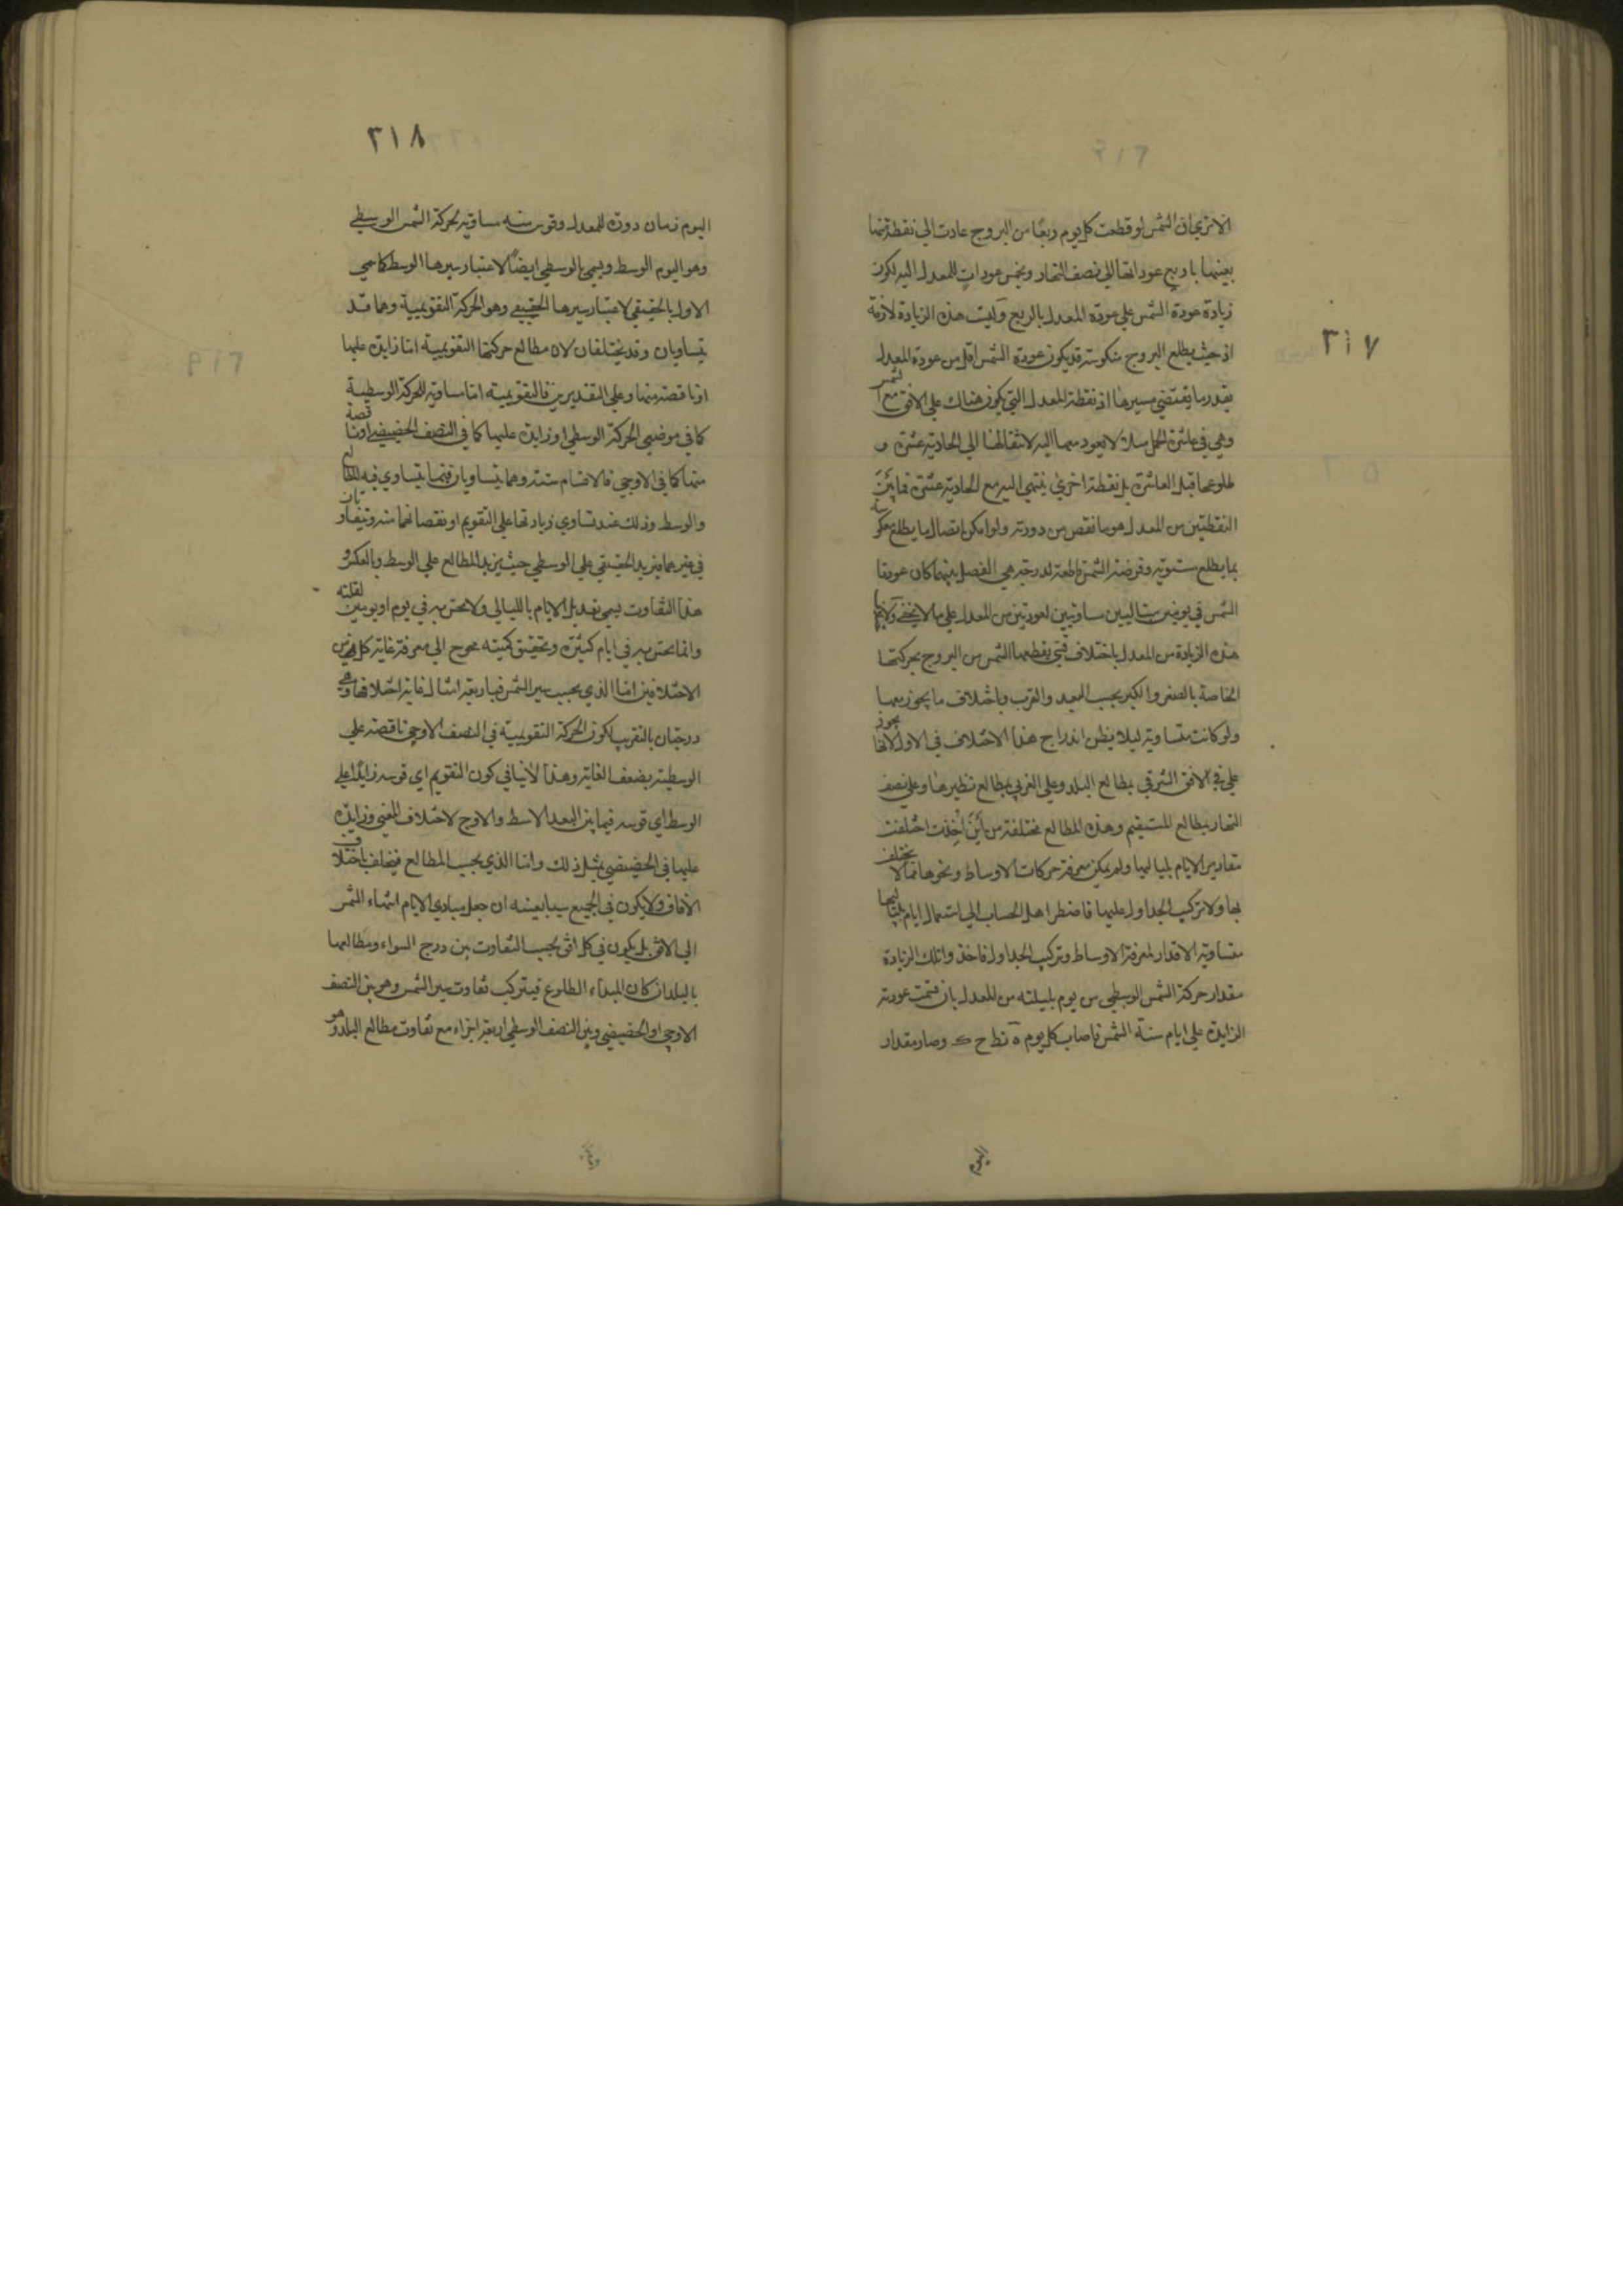 ٣١٧
الا ترى ان الشمس لو قطعت كل يوم ربعا من البروج عادت الى نقطة منها
بعينها باربع عوداتها الى نصف النهار وبخمس عودات للمعدل اليه لكون
زيادة عودة الشمس على عودة المعدل بالربع وليت هذه الزيادة لازمة
اذ حيث يطلع البروج منكوسة قد يكون عودة الشمس اقل من عودة المعدل
بقدر ما يقتضي مسيرها اذ نقطة المعدل التي يكون هناك على الافق مع الشمس
وهي في عاشرة الحمل مثلا لا يعود معها اليه لانتقالها الى الحادية عشرة و
طلوعها قبل العاشرة بل نقطة اخرى ينتهي اليه مع الحادية عشرة فما بين
النقطتين من المعدل هو ما نقص من دورته ولو امكن اتصال ما يطلع معكوسة
بما يطلع مستوية وفرضت الشمس قاطعة لدرجة هي الفصل بينهما كان عودتا
الشمس في يومين متتاليين مساويتين لعودتين من المعدل على ما لا يخفى
هذه الزيادة من المعدل باختلاف قسي يقطعها الشمس من البروج بحركتها
الخاصة بالصغر والكبر بحسب البعد والقرب وباختلاف ما يجوز معها
ولو كانت متساوية ليلا يظن اندراج هذا الاختلاف في الاول لانها يجوز
على في الافق الشرقي بمطالع البلد وعلى الغربي بمطالع نظيرها وعلى نصف
النهار بمطالع المستقيم وهذه المطالع مختلفة من اين اخذت اختلفت
مقادير الايام بلياليها ولم يكن معرفة حركات الاوساط ونحوها مما لا يختلف
بها ولا تركيب الجداول عليها فاضطر اهل الحساب الى استعمال ايام بلياليها
متساوية الاقدار لمعرفة الاوساط وتركيب الجداول فاخذوا تلك الزيادة
مقدار حركة الشمس الوسطي من يوم بليلته من المعدل بان قسمت عودته
الزايدة على ايام سنة الشمس فاصاب كل يوم ٥ نط ح ك وصار مقدار
اليوم
٣١٨
اليوم زمان دورة للمعدل وقوس منه مساوية لحركة الشمس الوسطي
وهو اليوم الوسط ويسمى بالوسطي ايضا لاعتبار سيرها الوسط كما سمي
الاول بالحقيقي لاعتبار سيرها الحقيقي وهو الحركة التقويمية وهما قد
يتساويان وقد يختلفان لان مطالع حركتها التقويمية اما زايدة عليها
او ناقصة منها وعلى التقديرين فالتقويمية اما مساوية للحركة الوسطية
كما في موضعي الحركة الوسطي او زايدة عليها كما في النصف الحضيضي او ناقصة
منها كما في الاوجي فالاقسام ستة وهما يتساويان فيما يتساوي فيه المطالع
والوسط وذلك عند تساوي زيادتها على التقويم او نقصانها منه ويتفاوتان
في غيرهما فيزيد الحقيقي على الوسطي حيث يزيد المطالع على الوسط وبالعكس و
هذا التفاوت يسمى تعديل الايام بالليالي ولا يحس به في يوم او يومين لقلته
وانما يحس به في ايام كثيرة وتحقيق كميته محوج الى معرفة غاية كل من
الاختلافين اما الذي بحسب سير الشمس فباربعة امثال غاية اختلافها وهي
درجتان بالتقريب لكون الحركة التقويمية في النصف الاوجي ناقصة على
الوسطية بضعف الغاية وهذا لا ينافي كون التقويم اي قوسه زايدا على
الوسط اي قوسه فيما بين البعد الاسط والاوج لاختلاف المعني وزايدة
عليها في الحضيضي بمثل ذلك واما الذي بحسب المطالع فيختلف باختلاف
الافاق ولا يكون في الجميع سببا بعينه ان جعل مبادي الايام انتهاء الشمس
الى الافق بل يكون في كل افق بحسب التفاوت بين درج السواء ومطالعها
بالبلد ان كان المبداء الطلوع فيتركب تفاوت سير الشمس وهو بين النصف
الاوجي او الحضيضي وبين النصف الوسطي اربعة اجزاء مع تفاوت مطالع البلد وهو